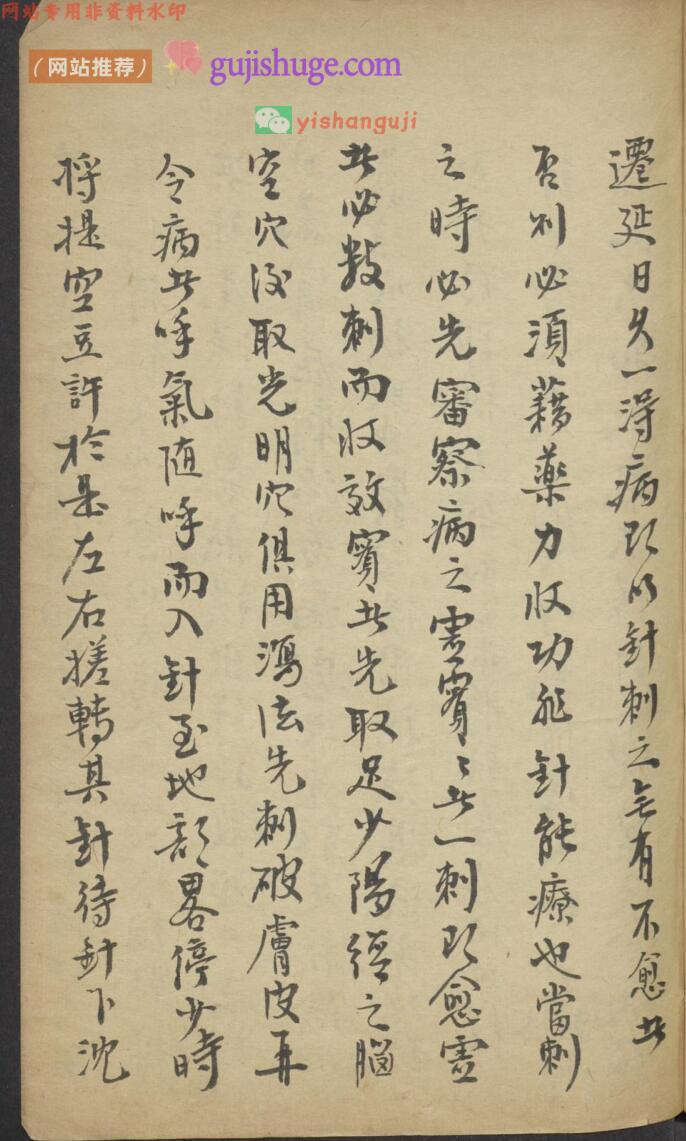 网站专用非资料水印
（网站推荐） gujishuge.com
yishanguji
遷延日久一得病即以針刺之無有不愈者
否則必須藉藥力收功非針能療也當刺
之時必先審察病之虛實〻者一刺即愈虛
者必數刺而收效實者先取足少陽經之腦
空穴後取光明穴俱用瀉法先刺破膚皮再
令病者呼氣隨呼而入針至地部畧停少時
將提空豆許於是左右搓轉其針待針下沈